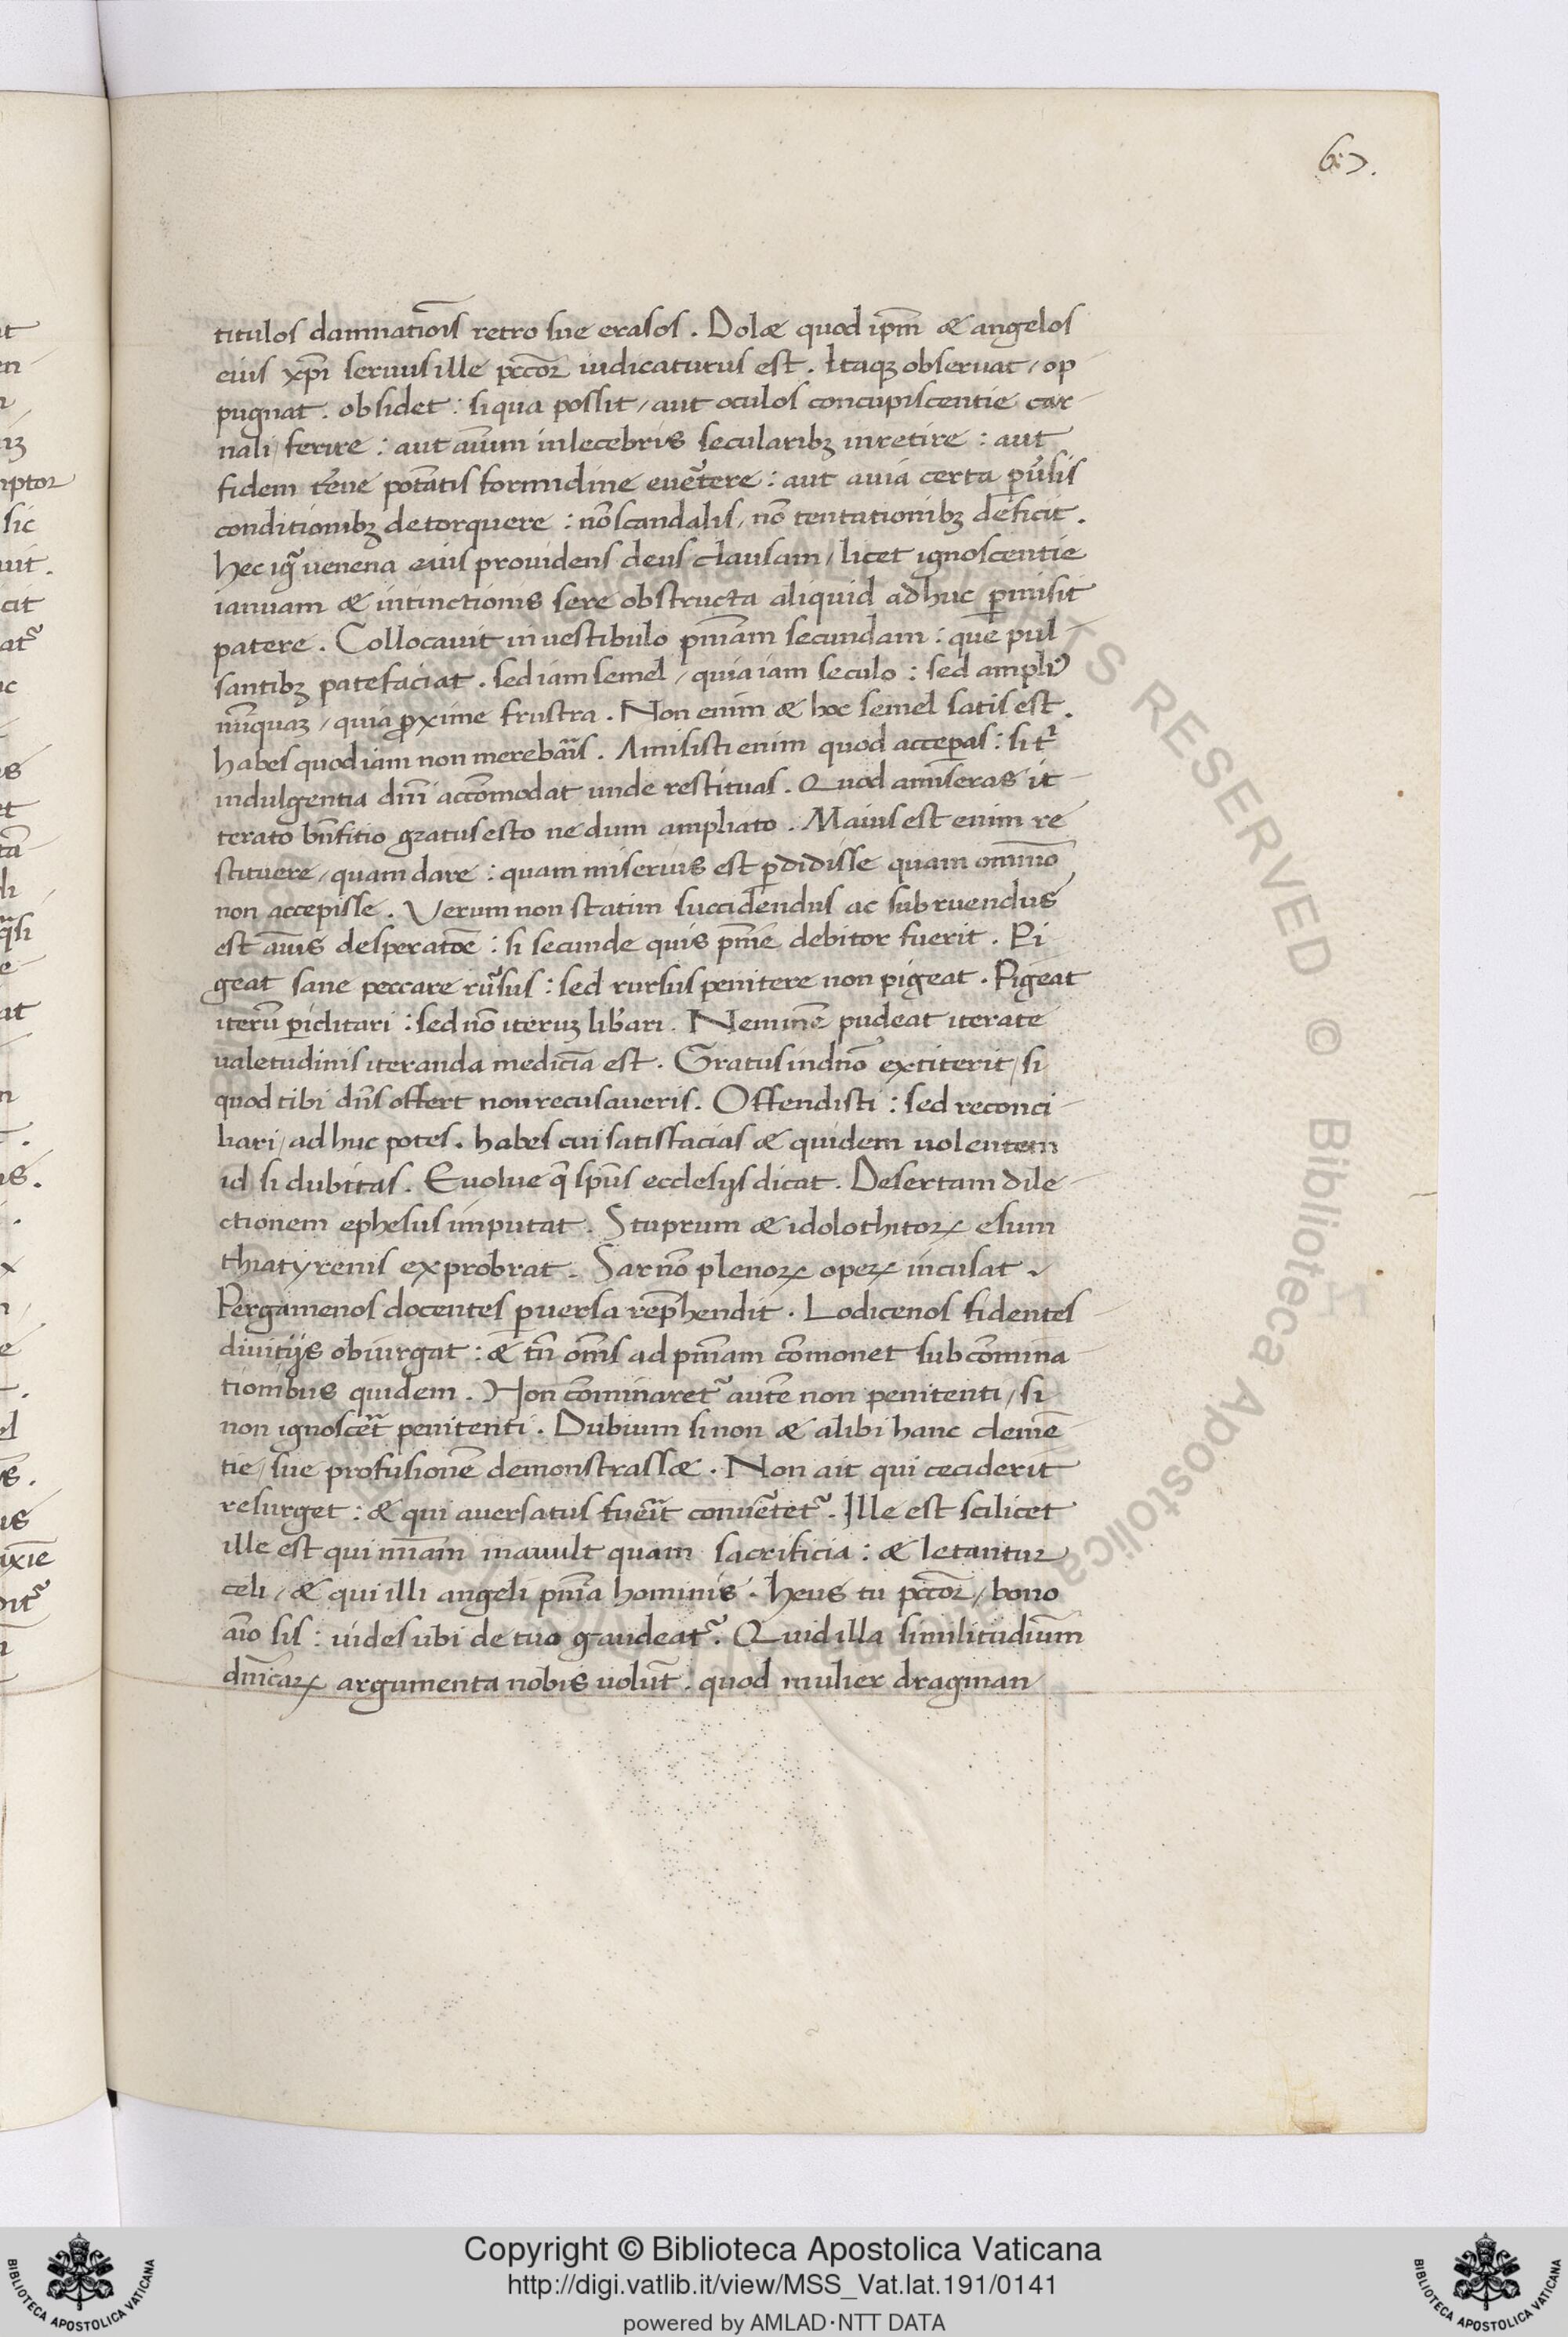 67.
titulos damnatiõis retro sue erasos . Dol& quod ip̄m & angelos
eius xp̄i seruus ille pc̄cor̄ iudicaturus est . Itaqꝫ obseruat / op
pugnat . obsidet : si qua possit / aut oculos concupiscentie car
nali / ferire : aut aīum inlecebris secularibꝫ inretire : aut
fidem tr̄ene potātis formidine eue᷑tere : aut a uia certa ꝑuẽsis
conditionibꝫ detorquere : nō scandalis / nō tentationibꝫ deficit .
hec igr̄ uenena eius prouidens deus clausam / licet ignoscentie
ianuam & intinctionis sere obstructa aliquid adhuc ꝑmisit
patere . Collocauit in uestibulo pn̄iam secundam : que pul
santibꝫ patefaciat . sed iam semel / quia iam seculo : sed ampliꝰ
nūquaꝫ / quia ꝓxime frustra . Non enim & hoc semel satis est .
habes quod iam non merebar̄is . Amisisti enim quod acceꝑas : si t᷑
indulgentia dn̄i accōmodat unde restituas . Quod amis̄eras it
terato bn̄fitio gratus esto ne dum ampliato . Maius est enim re
stituere / quam dare : quam miserius est ꝑdidisse quam omnīo
non accepisse . Verum non statim succidendus ac subruendus
est aīus desperatōe : si secunde quis pn̄ie debitor fuerit . Pi
geat sane peccare ru᷑sus : sed rursus penitere non pigeat . Pigeat
iterū ꝑiclitari : sed nō iteruꝫ lib̄ari . Neminē pudeat iterate
ualetudinis iteranda medicīa est . Gratus in dn̄o extiterit / si
quod tibi dn̄s offert non recusaueris . Offendisti : sed reconci
liari / ad huc potes . habes cui satisfacias & quidem uolentem
id si dubitas . Euolue q̄ sp̄us ecclesijs dicat . Desertam dile
ctionem ephesus imputat . Stuprum & idolothitoꝝ esum
thiatyrenis exprobrat . Sar nō plenoꝝ opeꝝ inculat .
Pergamenos docentes ꝑuersa rep̄hendit . Lodicenos fidentes
diuitijs obiurgat : & tn̄ om̄s ad pn̄iam cōmonet sub cōmina
tionibus quidem . Non cōminaret᷑ autē non penitenti / si
non ignoscer̄t penitenti . Dubium si non & alibi hanc clemē
tie / sue profusionē demonstrass& . Non ait qui ceciderit
resurget : & qui auersatus fuer̄it conue᷑tet᷑ . Ille est scilicet
ille est qui mīam mauult quam sacrificia : & letantur
celi / & qui illi angeli pn̄ia hominis . heus tu pc̄cor̄ / bono
aīo sis : uides ubi de tuo gaudeat᷑ . Quid illa similitudiūm
dn̄icaꝝ argumenta nobis uolūt : quod mulier dragman
Copyright © Biblioteca Apostolica Vaticana
http://digi.vatlib.it/view/MSS_Vat.lat.191/0141
powered by AMLAD·NTT DATA